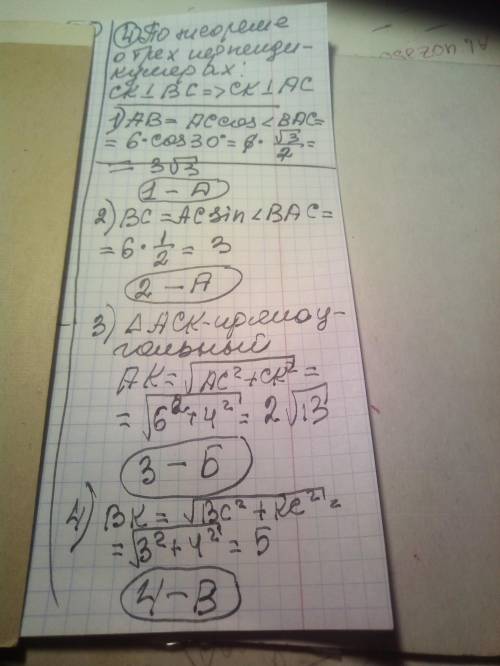 ④ По теореме
о трех перпенди-
кулярах:
CK⊥BC=>CK⊥AC
1) AB = AC cos∠BAC=
= 6·cos30°= 6·√3/2 =
= 3√3
1 – А
2) BC = AC sin∠BAC=
= 6·1/2 = 3
2 – А
3) ΔACK-прямоу-
гольный
AK = √AC²+CK² =
= √6²+4² = 2√13
3 – Б
4) BK = √BC²+KC² =
= √3²+4² = 5
4 – В